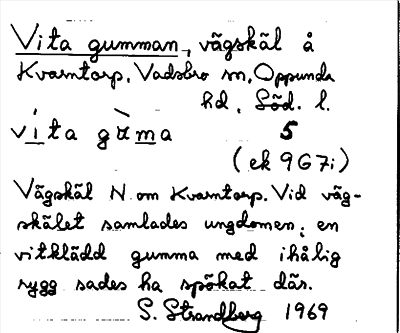 Vita gumman, vägskäl å
Kvarntorp, Vadsbro sn, Oppunda
hd, Söd. l.
víta gùma 5
(ek 9G7i)
Vägskäl N om Kvarntorp. Vid väg-
skälet samlades ungdomen; en
vitklädd gumma med ihålig
rygg sades ha spökat där.
S. Strandberg 1969